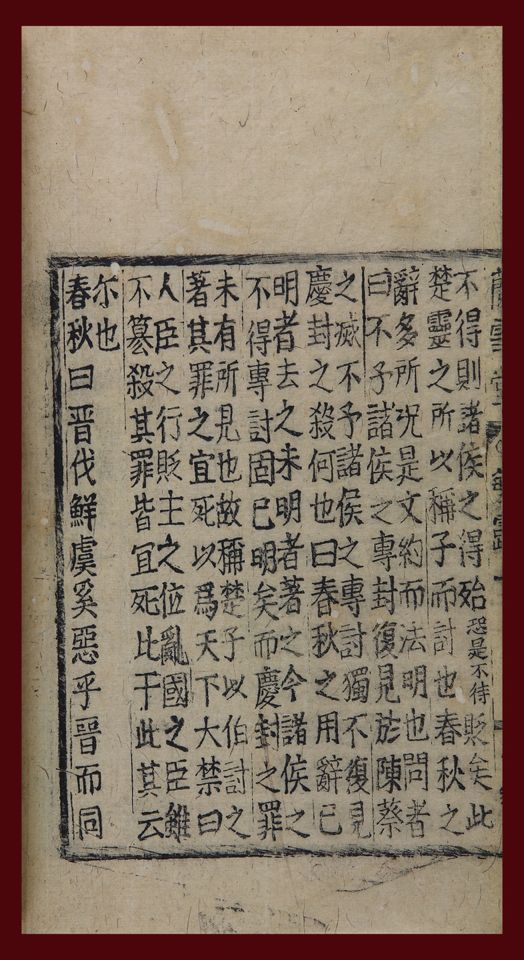 蘭雪堂
不得則諸侯之得殆恐是不待貶矣此
楚靈之所以稱子而討也春秋之
辭多所况是文約而法明也問者
曰不予諸侯之專封復見於陳蔡
之滅不予諸侯之專討獨不復見
慶封之殺何也曰春秋之用辭已
明者去之未明者著之今諸侯之
不得專討固已明矣而慶封之罪
未有所見也故稱楚子以伯討之
著其罪之宜死以爲天下大禁曰
人臣之行貶主之位亂國之臣雖
不篡殺其罪皆宜死比于此其云
尒也
春秋曰晋伐鮮虞奚惡乎晋而同